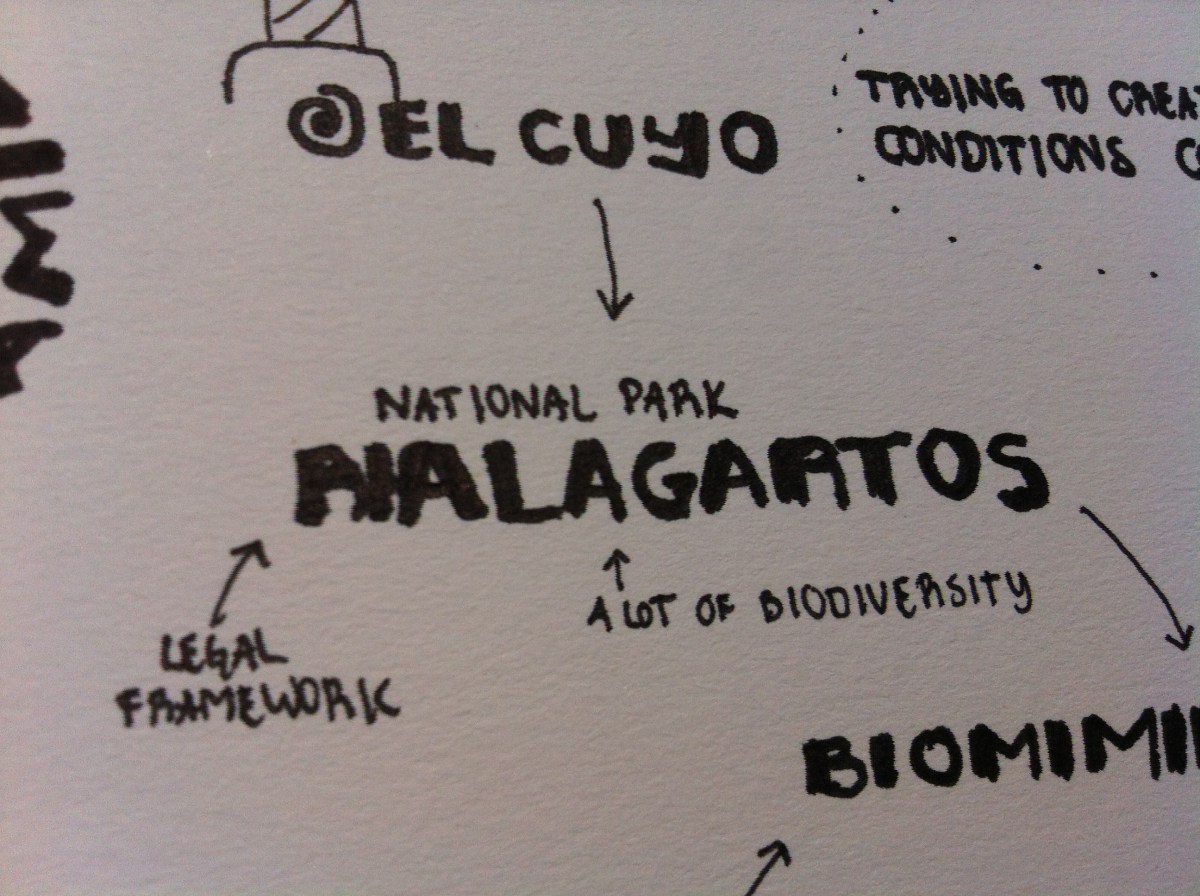 @ EL CUYO
TRYING TO
CONDITIONS
NATIONAL PARK
RIALAGARTOS
A LOT OF BIODIVERSITY
LEGAL
FRAMEWORK